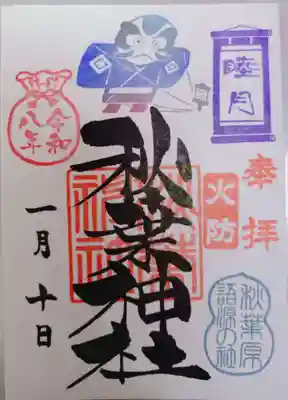 睦月
奉拝
火防
秋葉神社
秋葉原
語源の社
令和
八年
一月十日